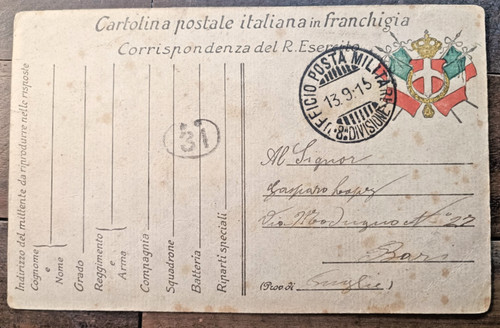 Cartolina postale italiana in franchigia
Corrispondenza del R. Esercito
UFFICIO POSTA MILITARE
13.9.15
8ª DIVISIONE
31
Al Signor
Gasparo Lopez
Via Modugno N. 27
Bari
(Prov. di Puglie)
Indirizzo del mittente da riprodurre nelle risposte
Cognome e Nome
Grado
Reggimento e Arma
Compagnia
Squadrone
Batteria
Riparti speciali